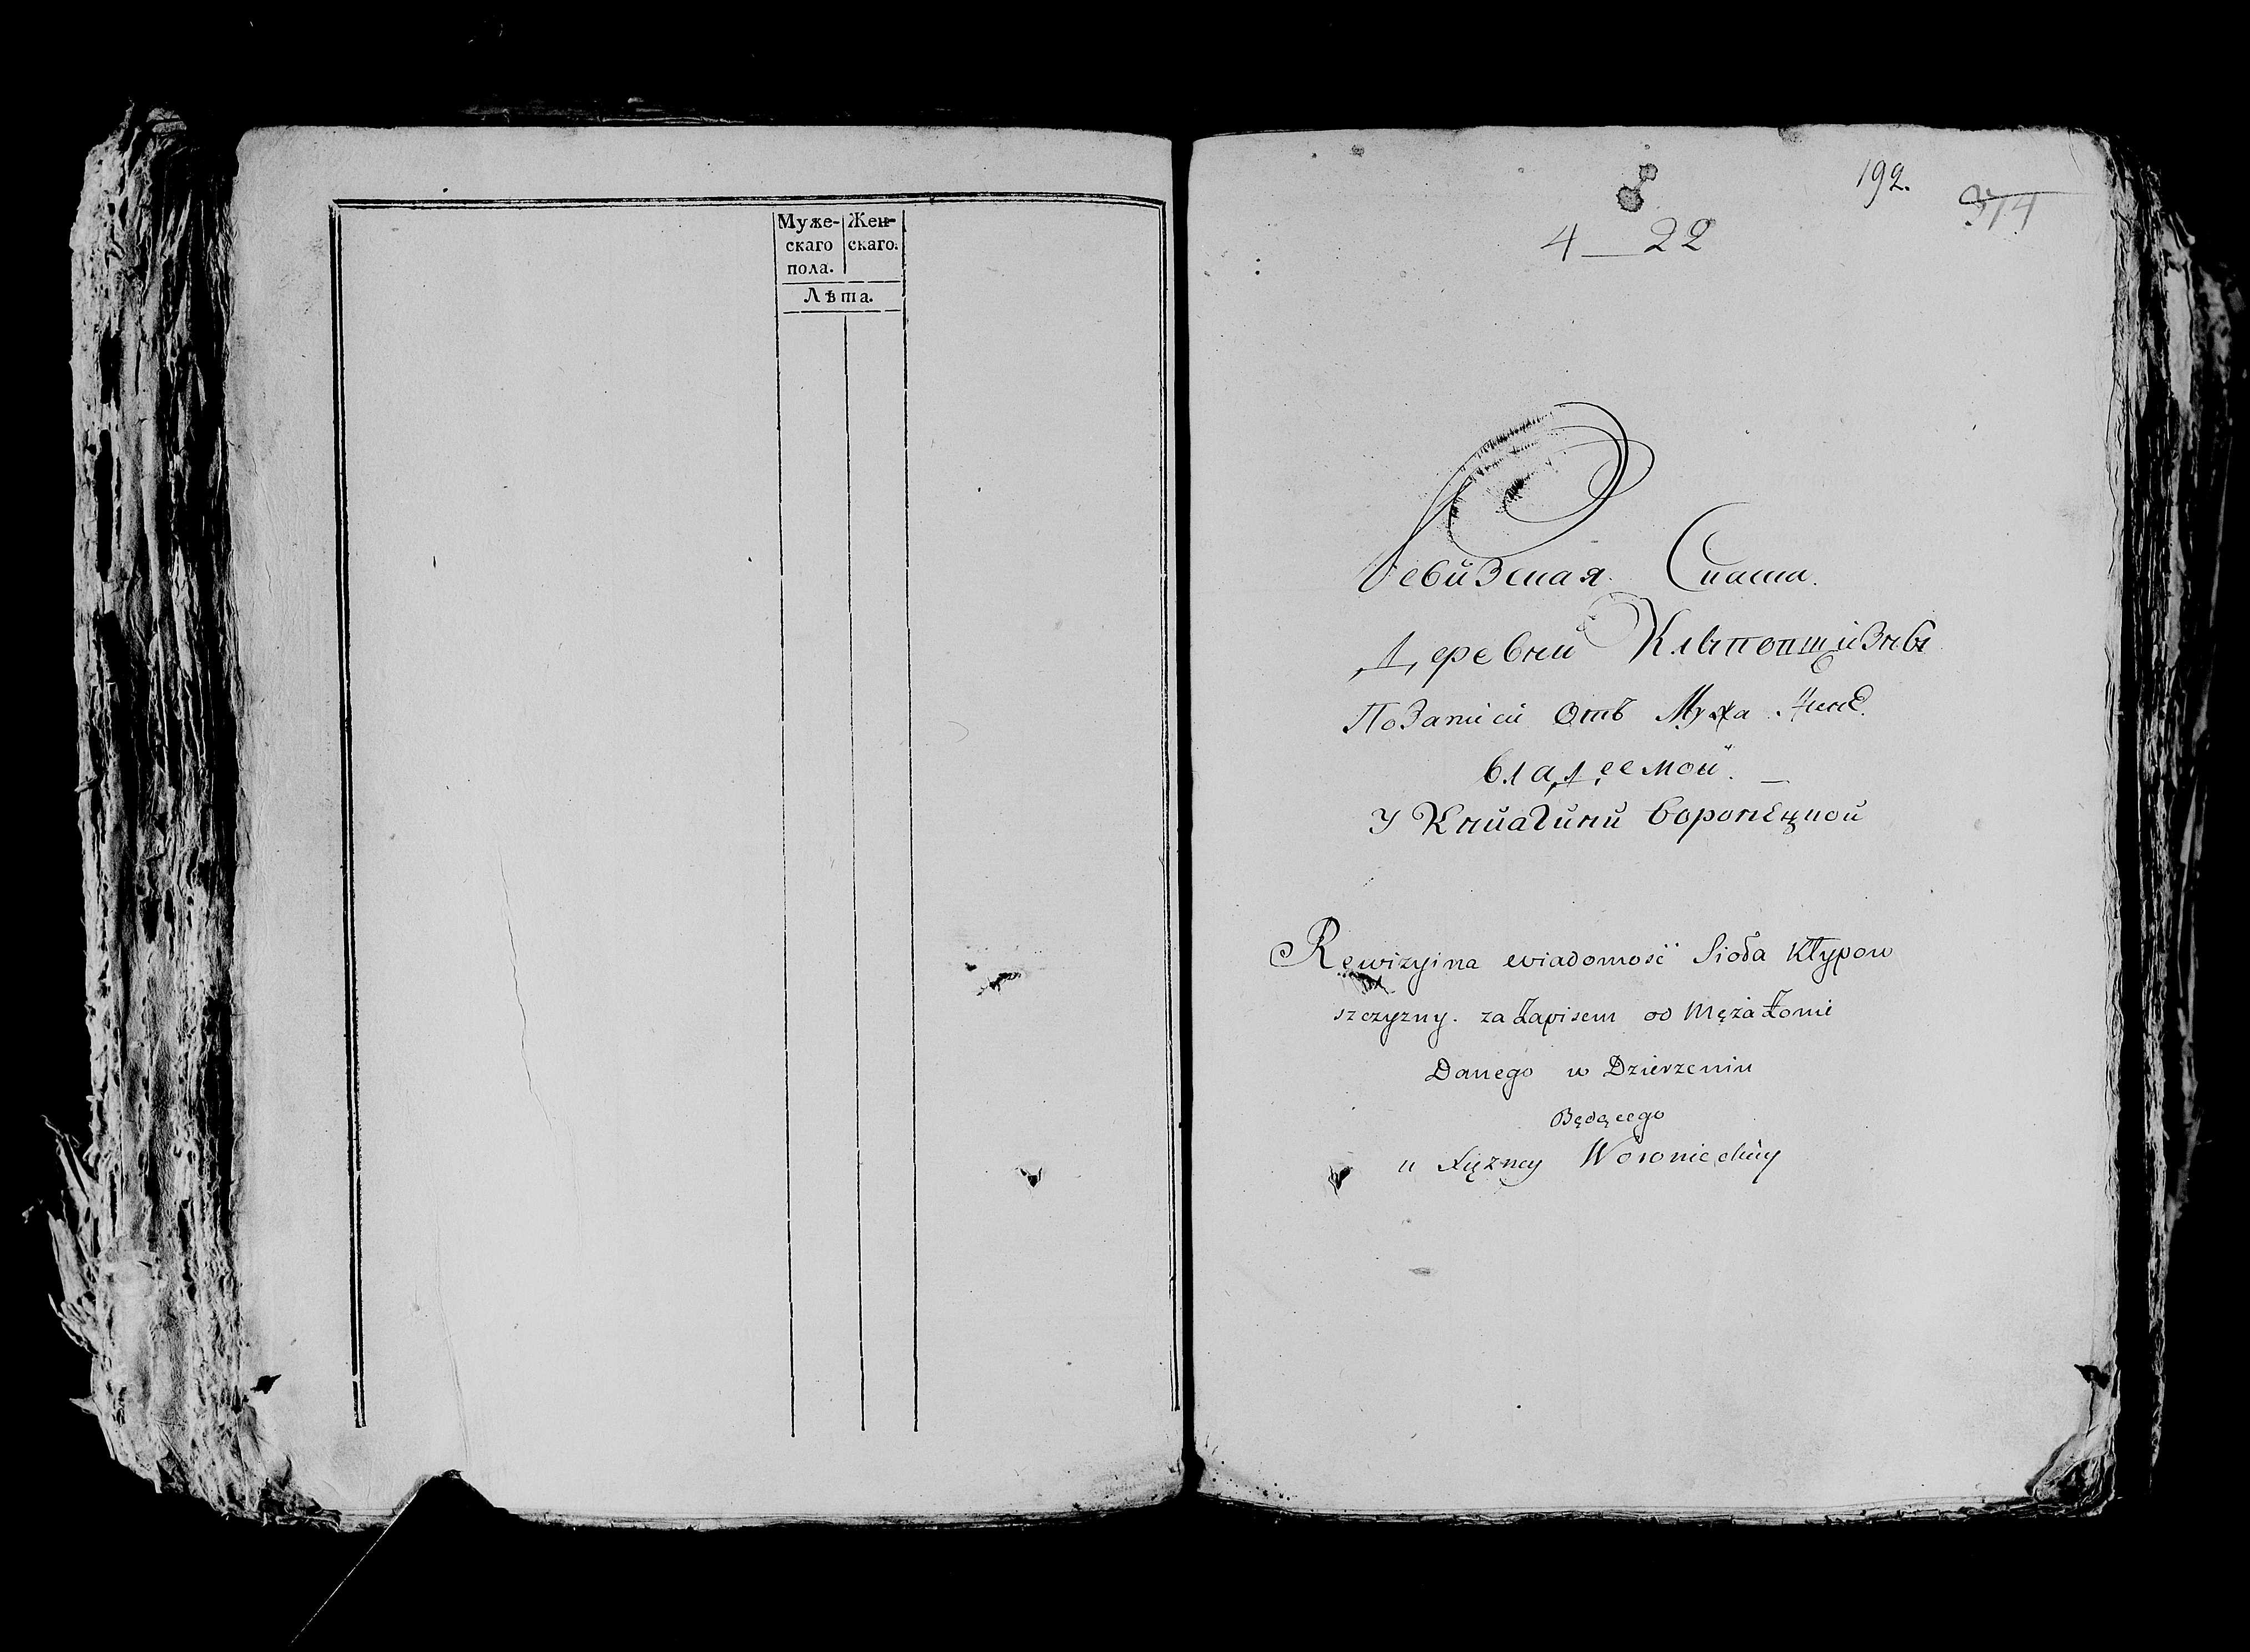 Муже- Жен-
скаго скаго.
пола.
Лѣта.
192.
374
4 — 22
Ревизская Скаска.
Деревни Клыповщизны
По Записи Отъ Мужа
владеемой. —
У Книагини Воронецкой
Rewizyina wiadomość Sioła Kłypow
szczyzny. za Zapisem od Męża Żonie
Danego w Dzierzeniu
Będącego
u Xiężney Woronieckiey